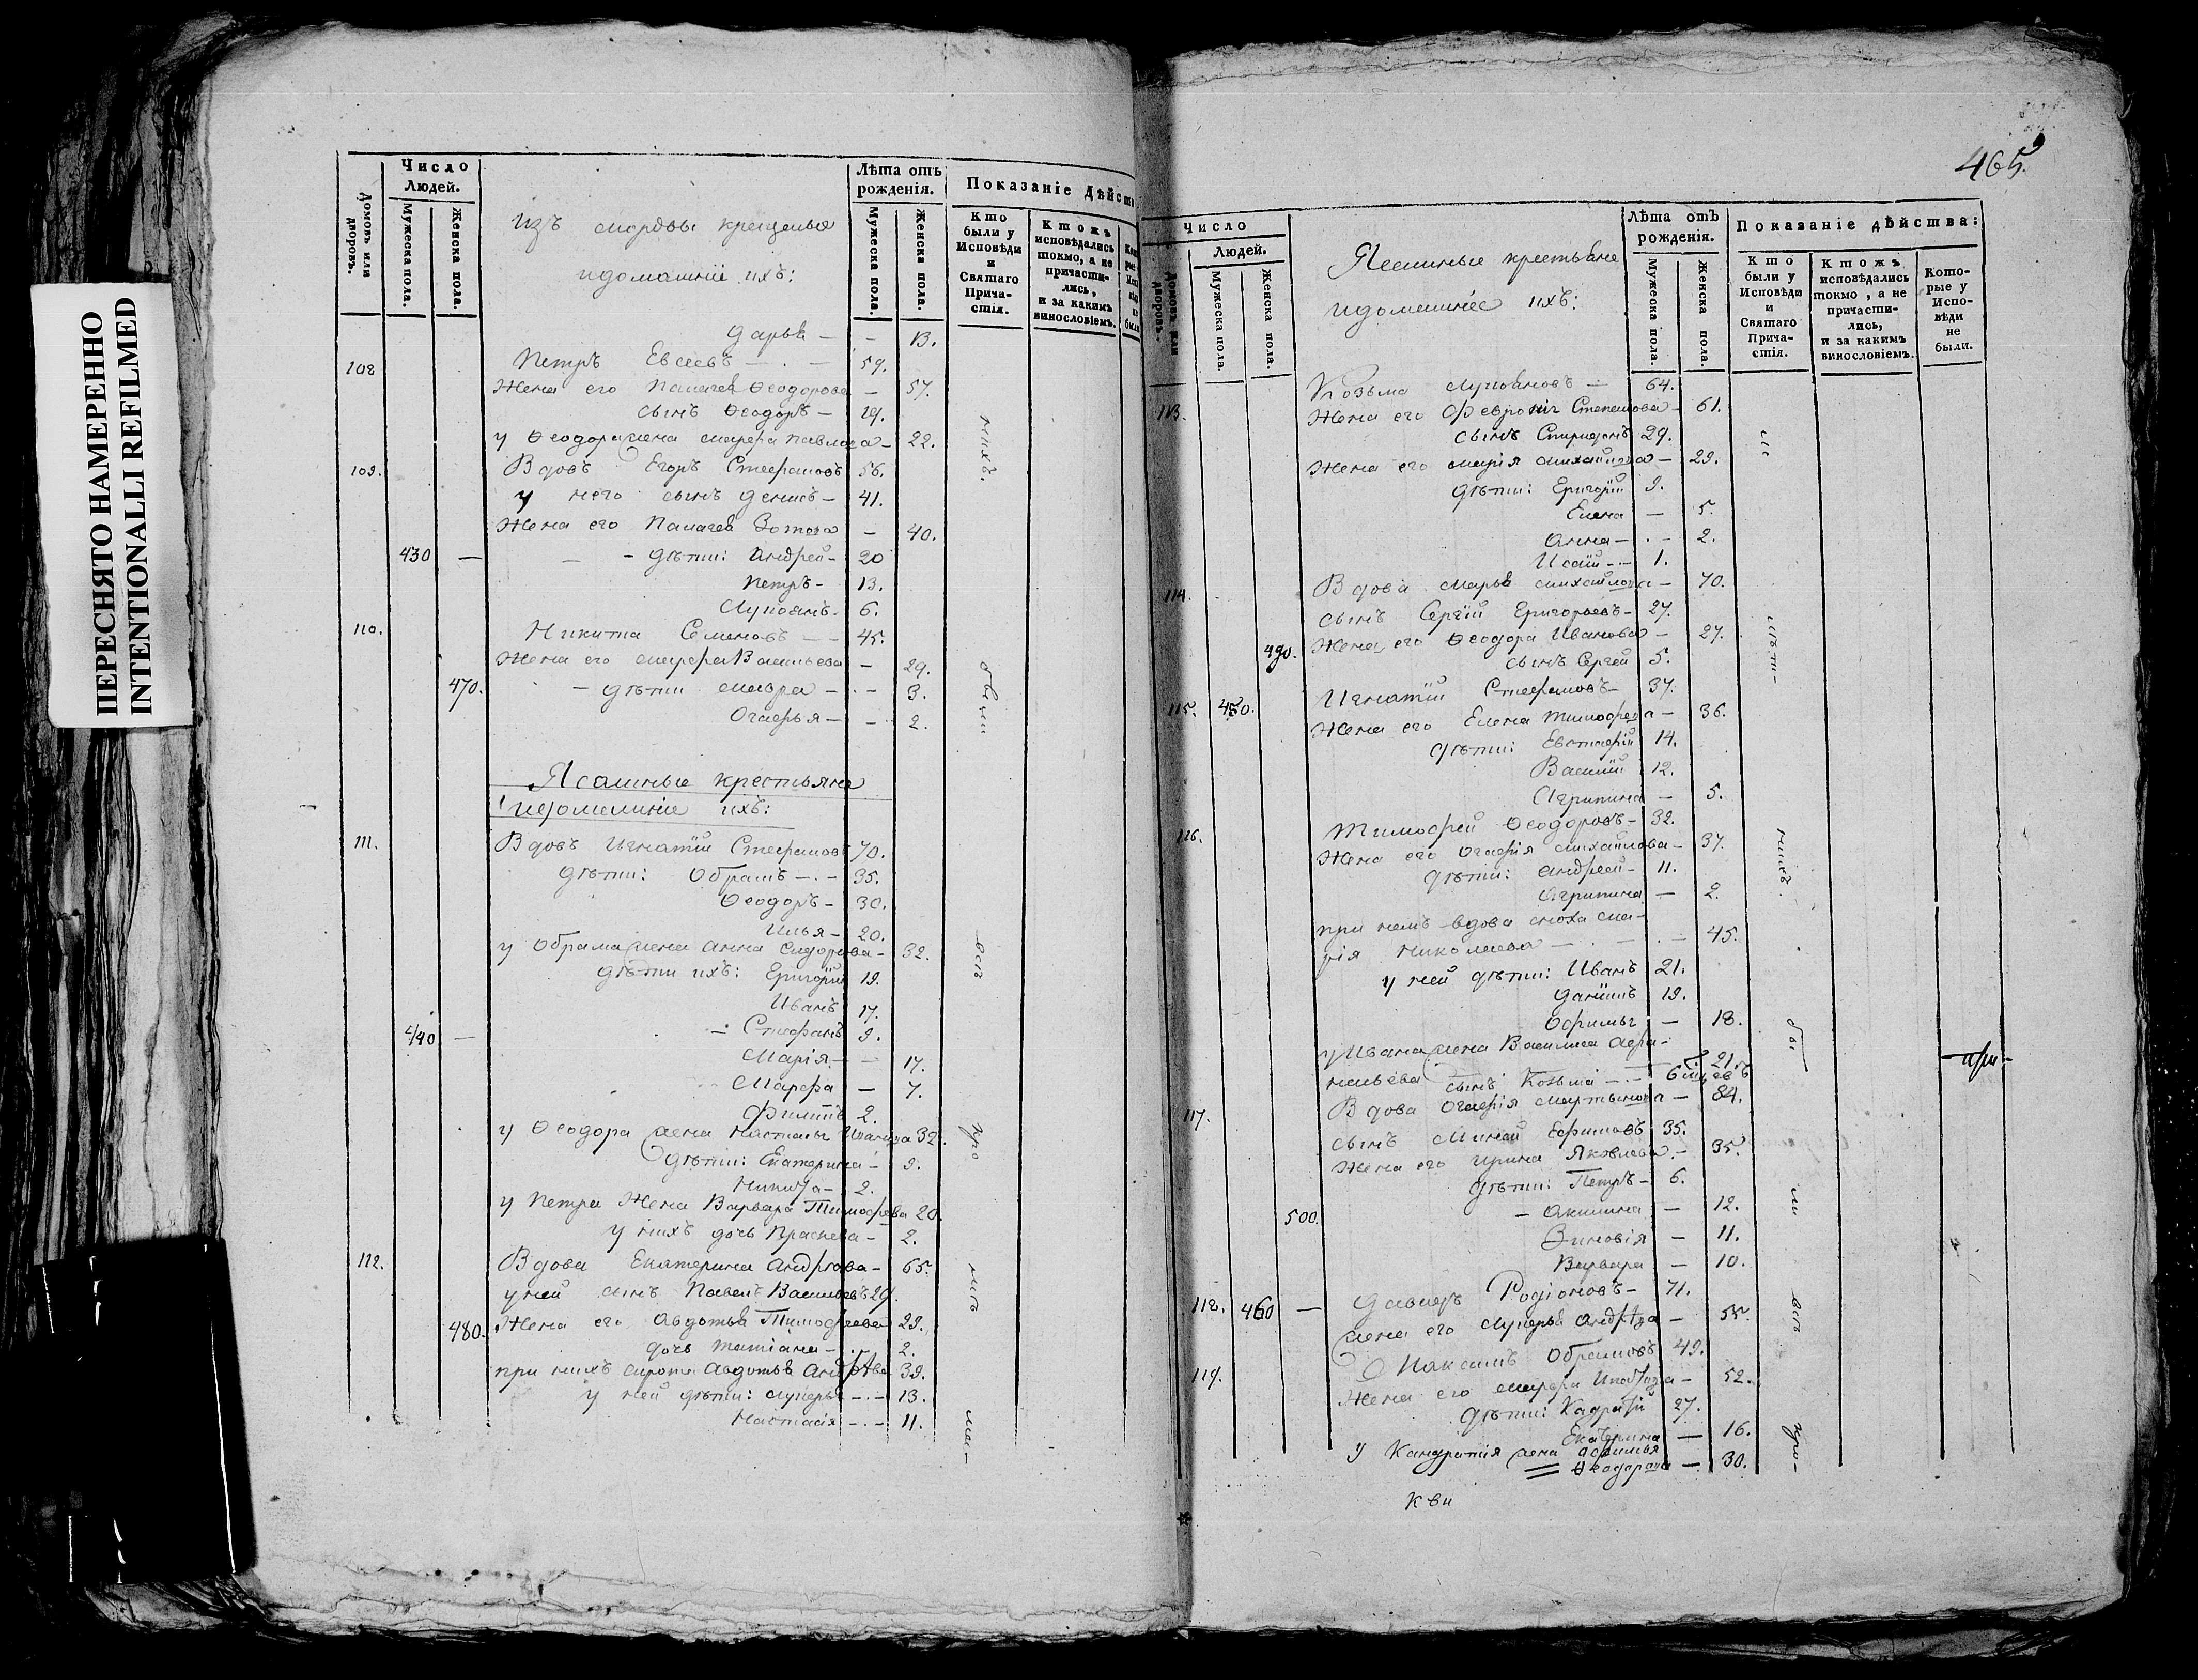 ПЕРЕСНЯТО НАМЕРЕННО
INTENTIONALLI REFILMED
Домовъ или дворовъ.
Число Людей.
Мужеска пола.
Женска пола.
Изъ мордвы крещеные
идомашніе ихъ:
Лѣта отъ рожденія.
Мужеска пола.
Женска пола.
Показаніе Дѣйств
Кто были у Исповѣди и Святаго Прича-стія.
Ктожъ исповѣдались токмо, а не причасти-лись, и за какимъ винословіемъ.
Дарья — — 13.
108 Петръ Евсеевъ — . — 59.
Жена его Палагея Ѳеодорова — 57.
сынъ Ѳеодоръ — 19.
у Ѳеодора жена марѳа павлова — 22.
109. Вдовъ Егоръ Стефановъ 56.
у него сынъ Денисъ — 41.
Жена его Палагея Зотова — 40.
430 — — дѣти: Андрей — 20
Петръ — 13.
Лупоянъ — 6.
110. Никита Семеновъ — — 45.
Жена его марфа Васильева — 29.
470. — дѣти мавра — . — 3.
Огафья — — 2.
Ясашные крестьяне
идомашніе ихъ:
111. Вдовъ Игнатій Стефановъ 70.
дѣти: Обрамъ — . — 35.
Ѳеодоръ — 30.
Илья — 20.
у Обрама жена анна Сидорова — 32.
дѣти ихъ: Григорій 19.
Иванъ 17.
440 — — Стефанъ 9.
Марія — — 17.
Марфа — 7.
Филипъ 2.
у Ѳеодора жена Настасья Иванова 32.
дѣти: Екатерина — 9.
Никита — 2.
у Петра Жена Варвара Тимофеева 20.
у нихъ дочь Праскева — 2.
112. Вдова Екатерина Андреева — 65.
уней сынъ Павелъ Васильевъ 29.
480. Жена его Авдотья Тимофеева 29.
дочь татіана — . — 2.
при нихъ сирота Авдотья Андреева 39.
у ней дѣти: лукерья — . — 13.
Настасія — . — 11.
нихъ.
овины
всѣ
про
465
Число
Людей.
Домовъ или дворовъ.
Мужеска пола.
Женска пола.
Ясашные крестьяне
идомашніе ихъ:
Лѣта отъ рожденія.
Мужеска пола.
Женска пола.
Показаніе дѣйства:
Кто были у Исповѣди и Святаго Прича-стія.
Ктожъ исповѣдались токмо, а не причасти-лись, и за какимъ винословіемъ.
Кото-рые у Испо-вѣди не были.
113. Козьма Лупояновъ — 64.
Жена его Февронія Степанова — 61.
сынъ Спиридонъ 29.
Жена его марія михайлова — 29.
дѣти: Григорій 9.
Елена — 5.
Анна — . — 2.
Исай — . — 1.
114. Вдова марья михайлова — 70.
сынъ Сергій Григорьевъ — 27.
490. Жена его Ѳеодора Иванова — 27.
сынъ Сергей 5.
115. 450. Игнатій Стефановъ — 37.
Жена его Елена тимофеева — 36.
дѣти: Евстафій 14.
Василій 12.
Агрипина — 5.
116. Тимофей Ѳеодоровъ — 32.
Жена его Огафія михайлова — 37.
дѣти: андрей — 11.
Агрипина — 2.
при немъ вдова сноха ма-
рія Николаева — . — . — 45.
у ней дѣти: Иванъ 21.
Данилъ 19.
Офимья — 18.
у Ивана жена Василиса
сынъ Козьма — . — 21.
117. Вдова Огафія мартынова — 84.
сынъ Минай Ефимовъ 35.
Жена его Ирина Яковлева — 35.
дѣти: Петръ — 6.
500. — Акилина — 12.
Зиновія — 11.
Варвара — 10.
118. 460 — Давыдъ Родіоновъ — 71.
жена его Лукерья Андреева — 55.
119. Максимъ Обрамовъ 49.
Жена его марфа Игнатова — 52.
дѣти: Кадратій 27.
Екатерина — 16.
У Кандратія жена Афимья
Ѳеодорова — 30.
нихъ
бы
ли
всѣ
при-
кви